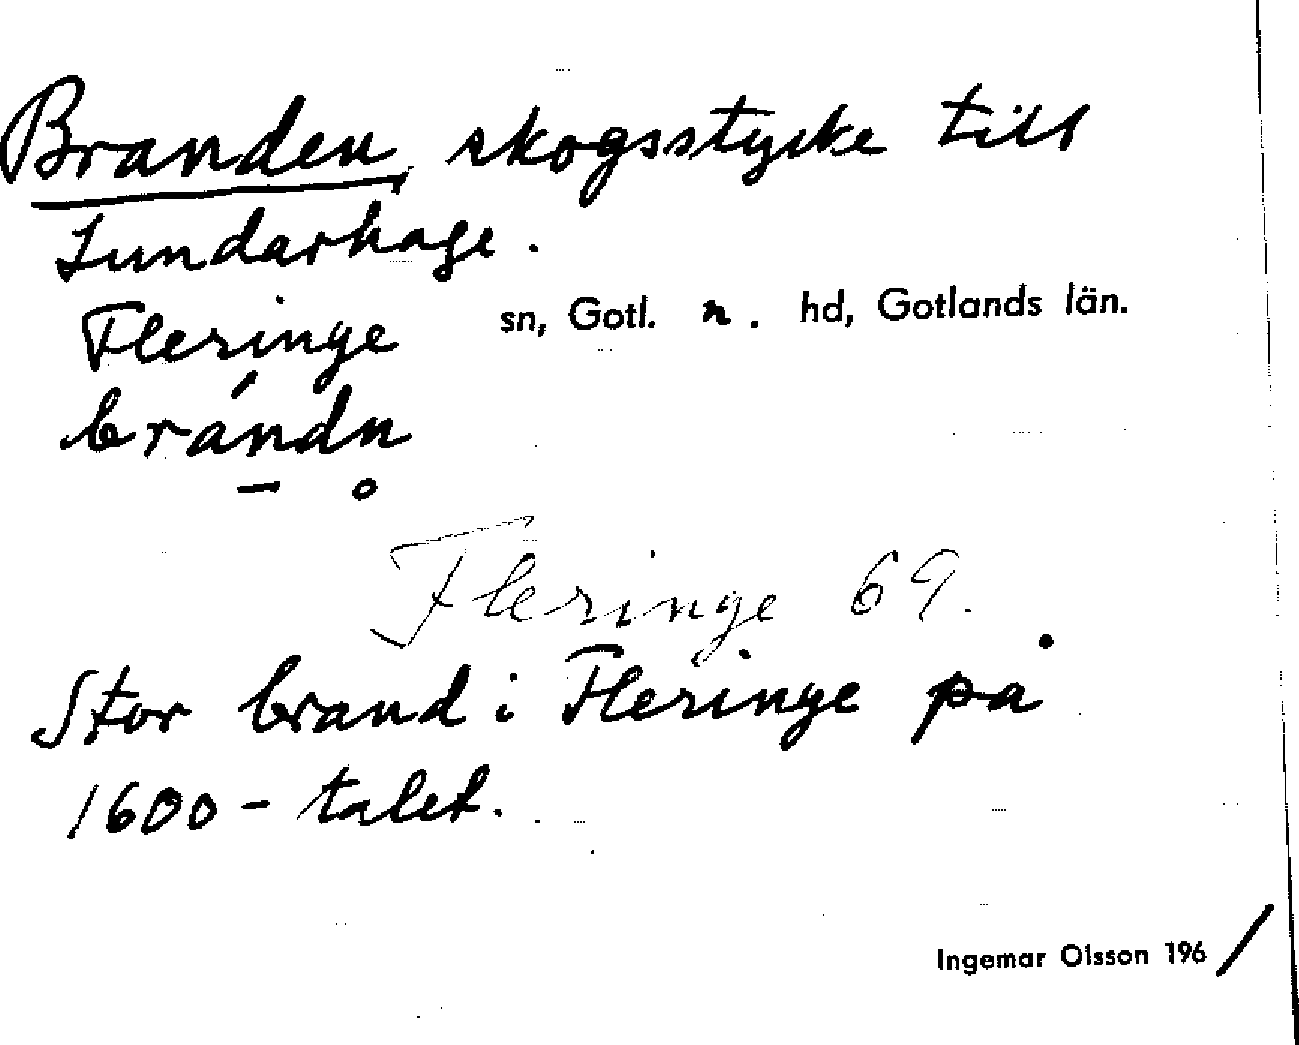 Branden, skogsstycke till
Lundarhage.
Fleringe sn, Gotl. n. hd, Gotlands län.
brándn̥
Fleringe 69.
Stor brand i Fleringe på
1600-talet.
Ingemar Olsson 1961